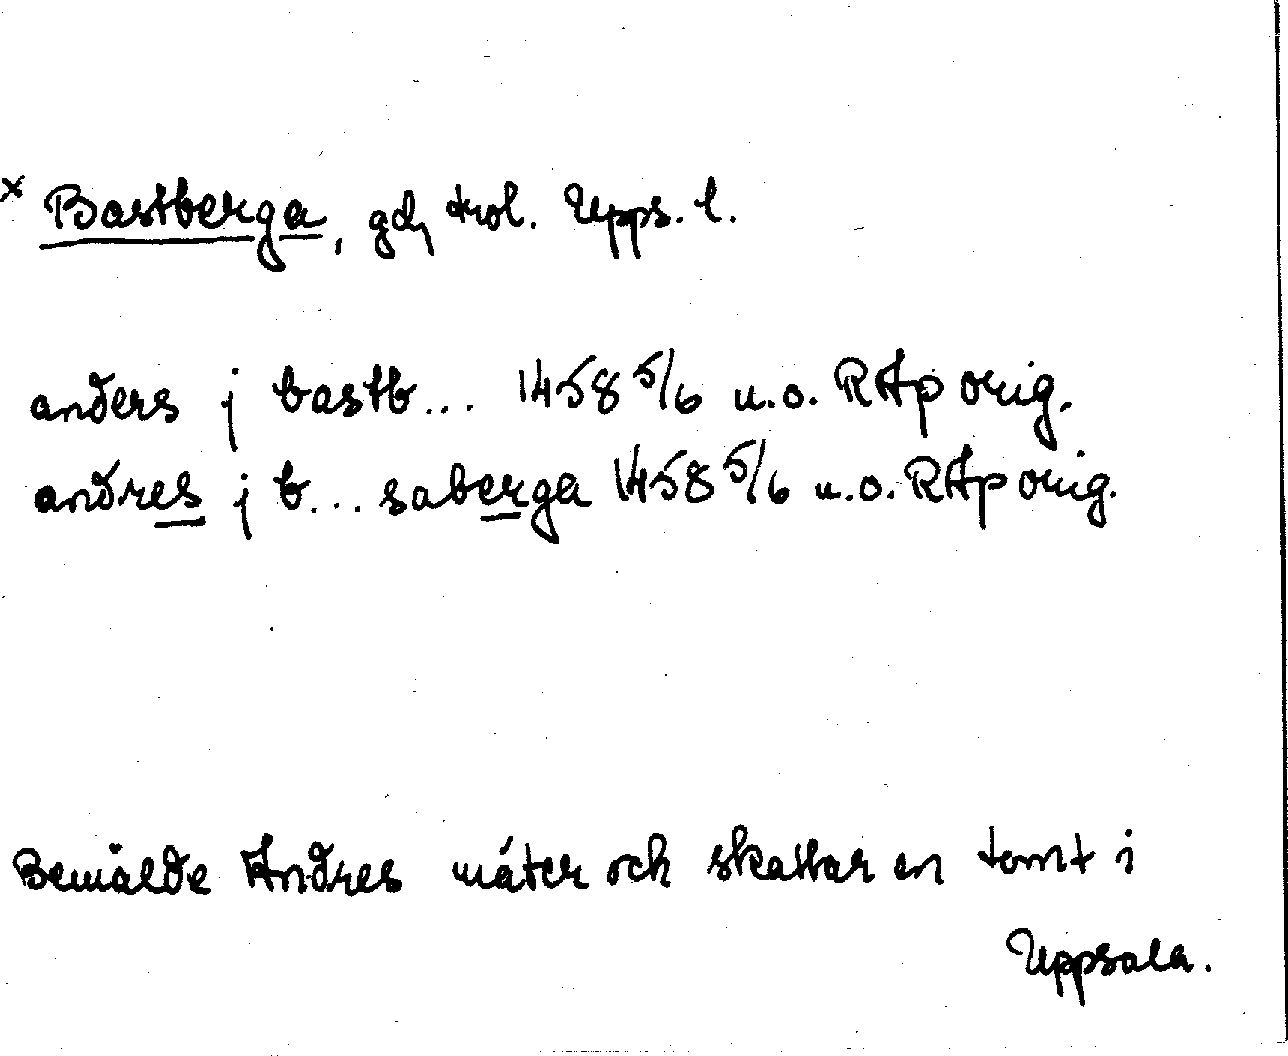 × Bastberga, gd, trol. Upps. l.
anders j bastb... 1458 5/6 u.o. RAp orig.
andres j b... saberga 1458 5/6 u.o. RAp orig.
Bemälde Andres mäter och skattar en tomt i
Uppsala.